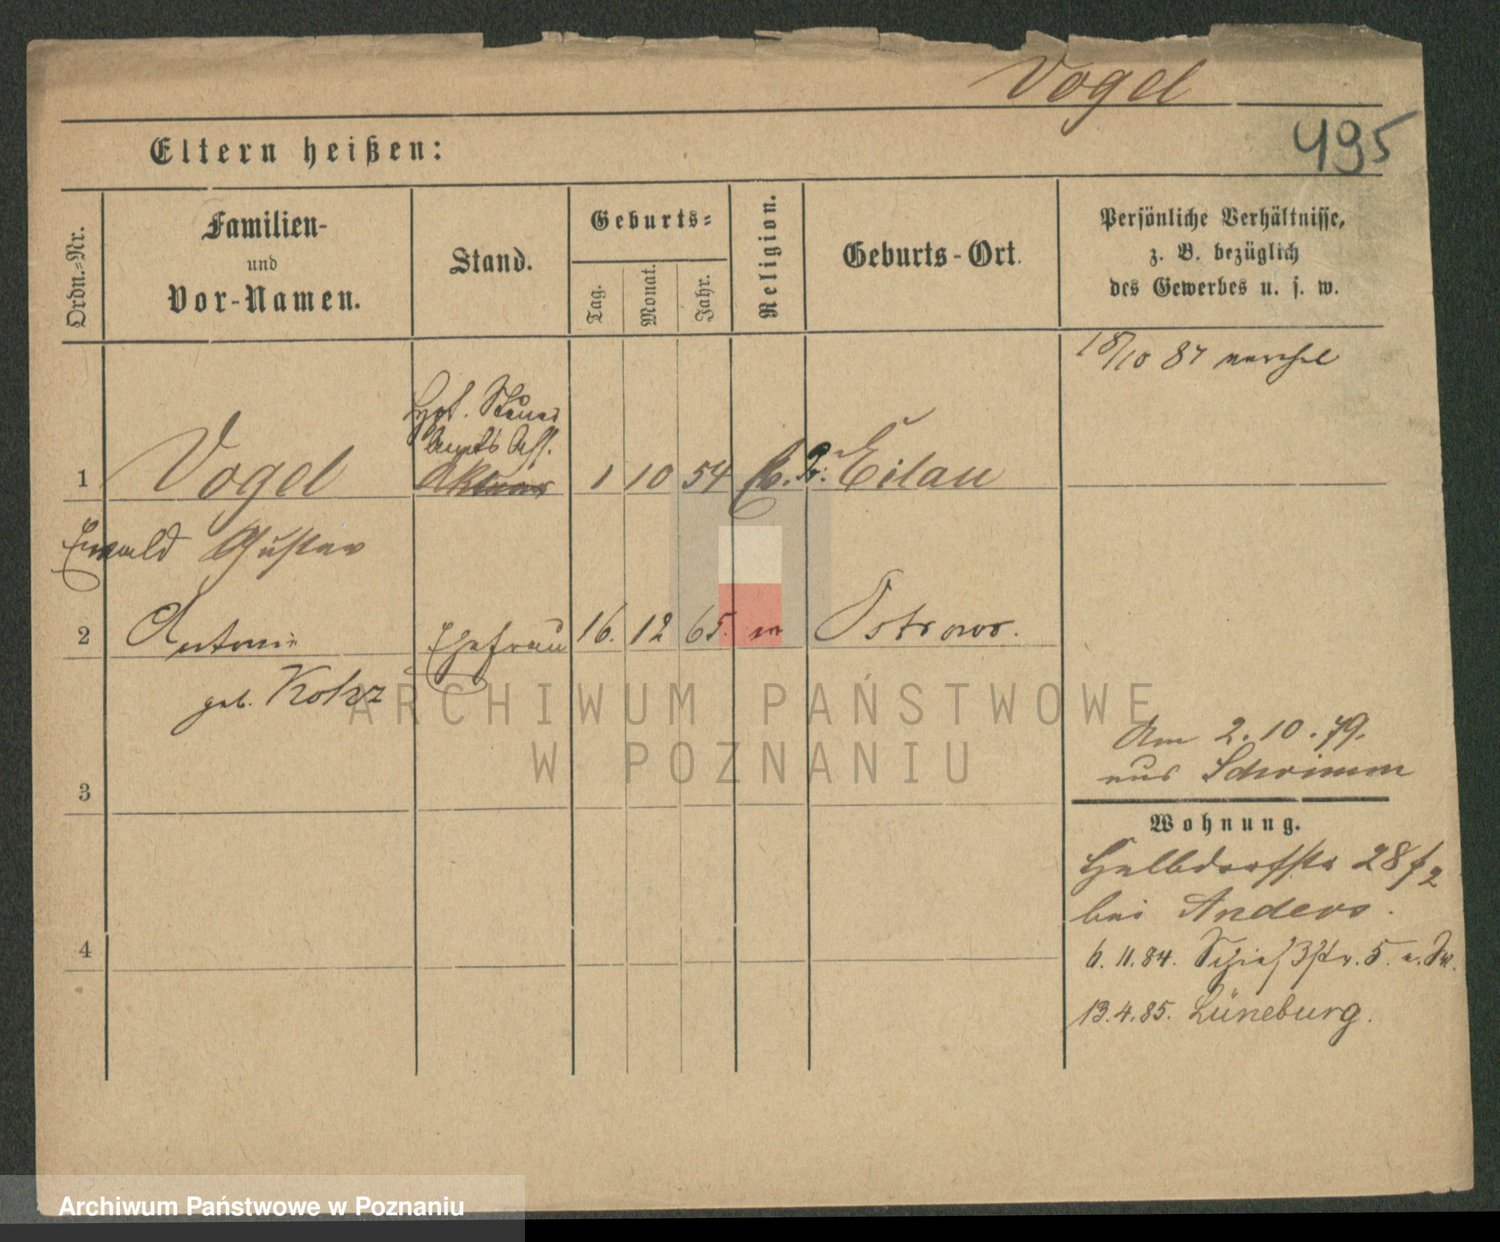 Vogel
495
Eltern heißen:
Ordn.=Nr.
Familien-
und
Vor-Namen.
Stand.
Geburts=
Tag.
Monat.
Jahr.
Religion.
Geburts-Ort.
Persönliche Verhältnisse,
z. B. bezüglich
des Gewerbes u. s. w.
18/10 87
Hpt. Steuer
Amts Ass.
1 Vogel 1 10 54 Pr: Eilau
Ewald Gustav
2 Antonie Ehefrau 16. 12 65. Ostrowo.
geb.
ARCHIWUM PAŃSTWOWE
W POZNANIU
Am 2.10.79.
aus Schrimm
3
Wohnung.
Halbdorfstr 28
bei Anders.
4
6.11.84. Schießstr. 5.
13.4.85. Lüneburg.
Archiwum Państwowe w Poznaniu